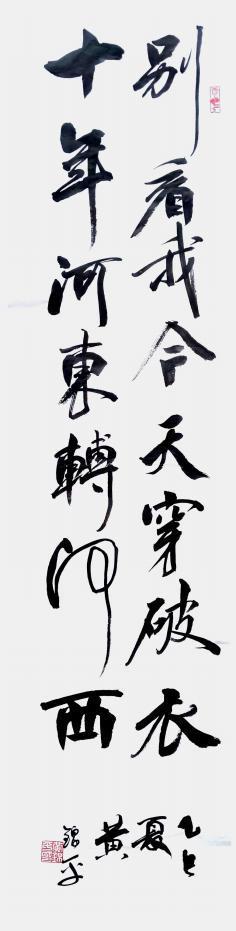 别看我今天穿破衣
十年河東轉河西
乙巳
夏
黄
錦平